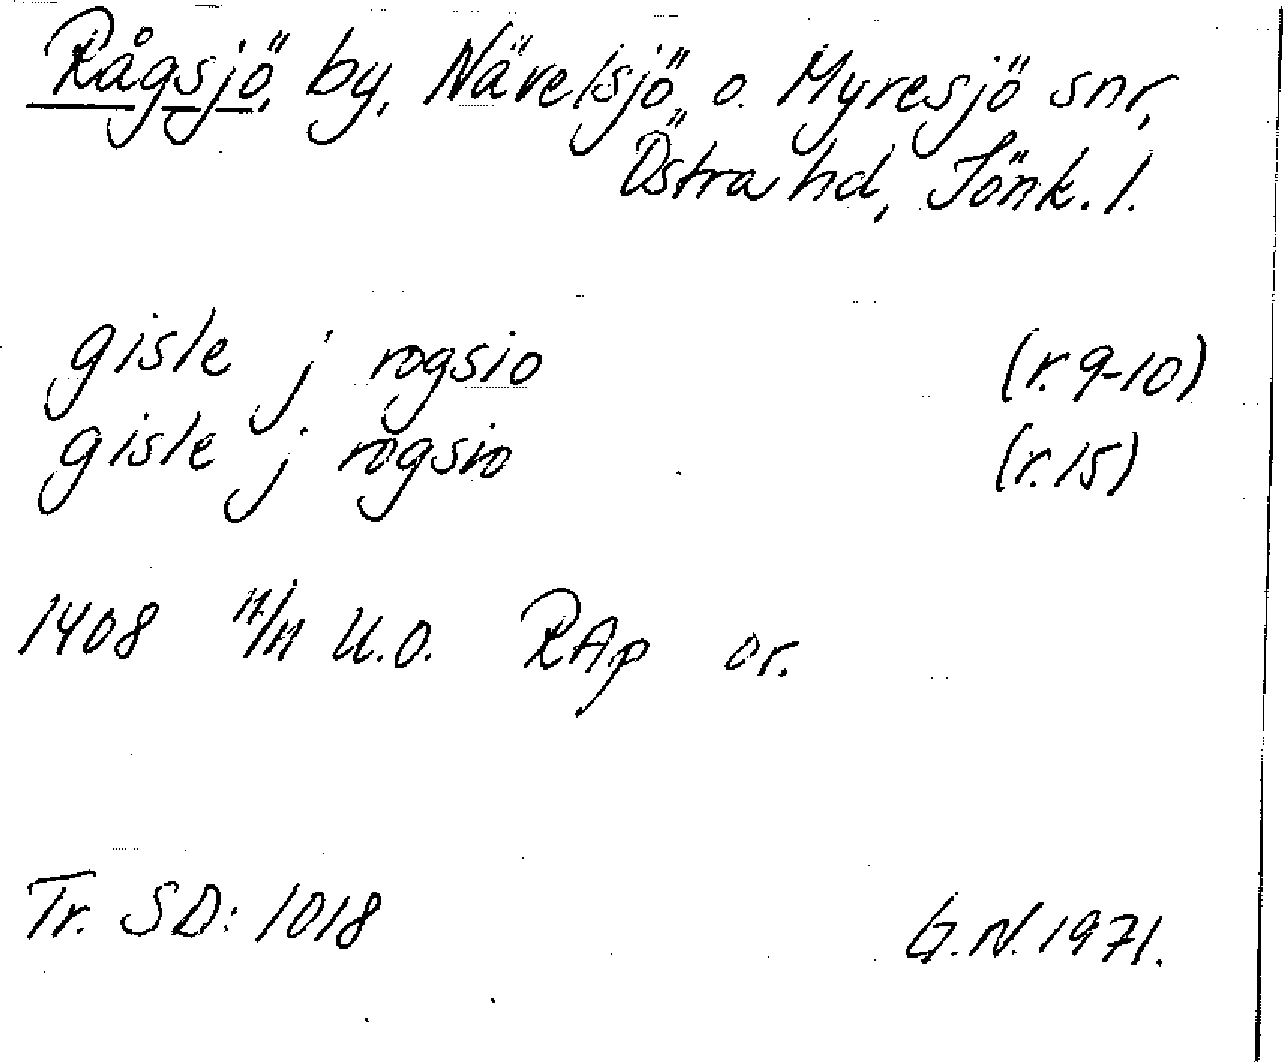 Rågsjö, by, Nävelsjö o. Myresjö snr,
Östra hd, Jönk. l.
gisle j rogsio (r. 9-10)
gisle j rogsio (r. 15)
1408 U.O. RAp or.
Tr. SD: 1018 G.N. 1971.